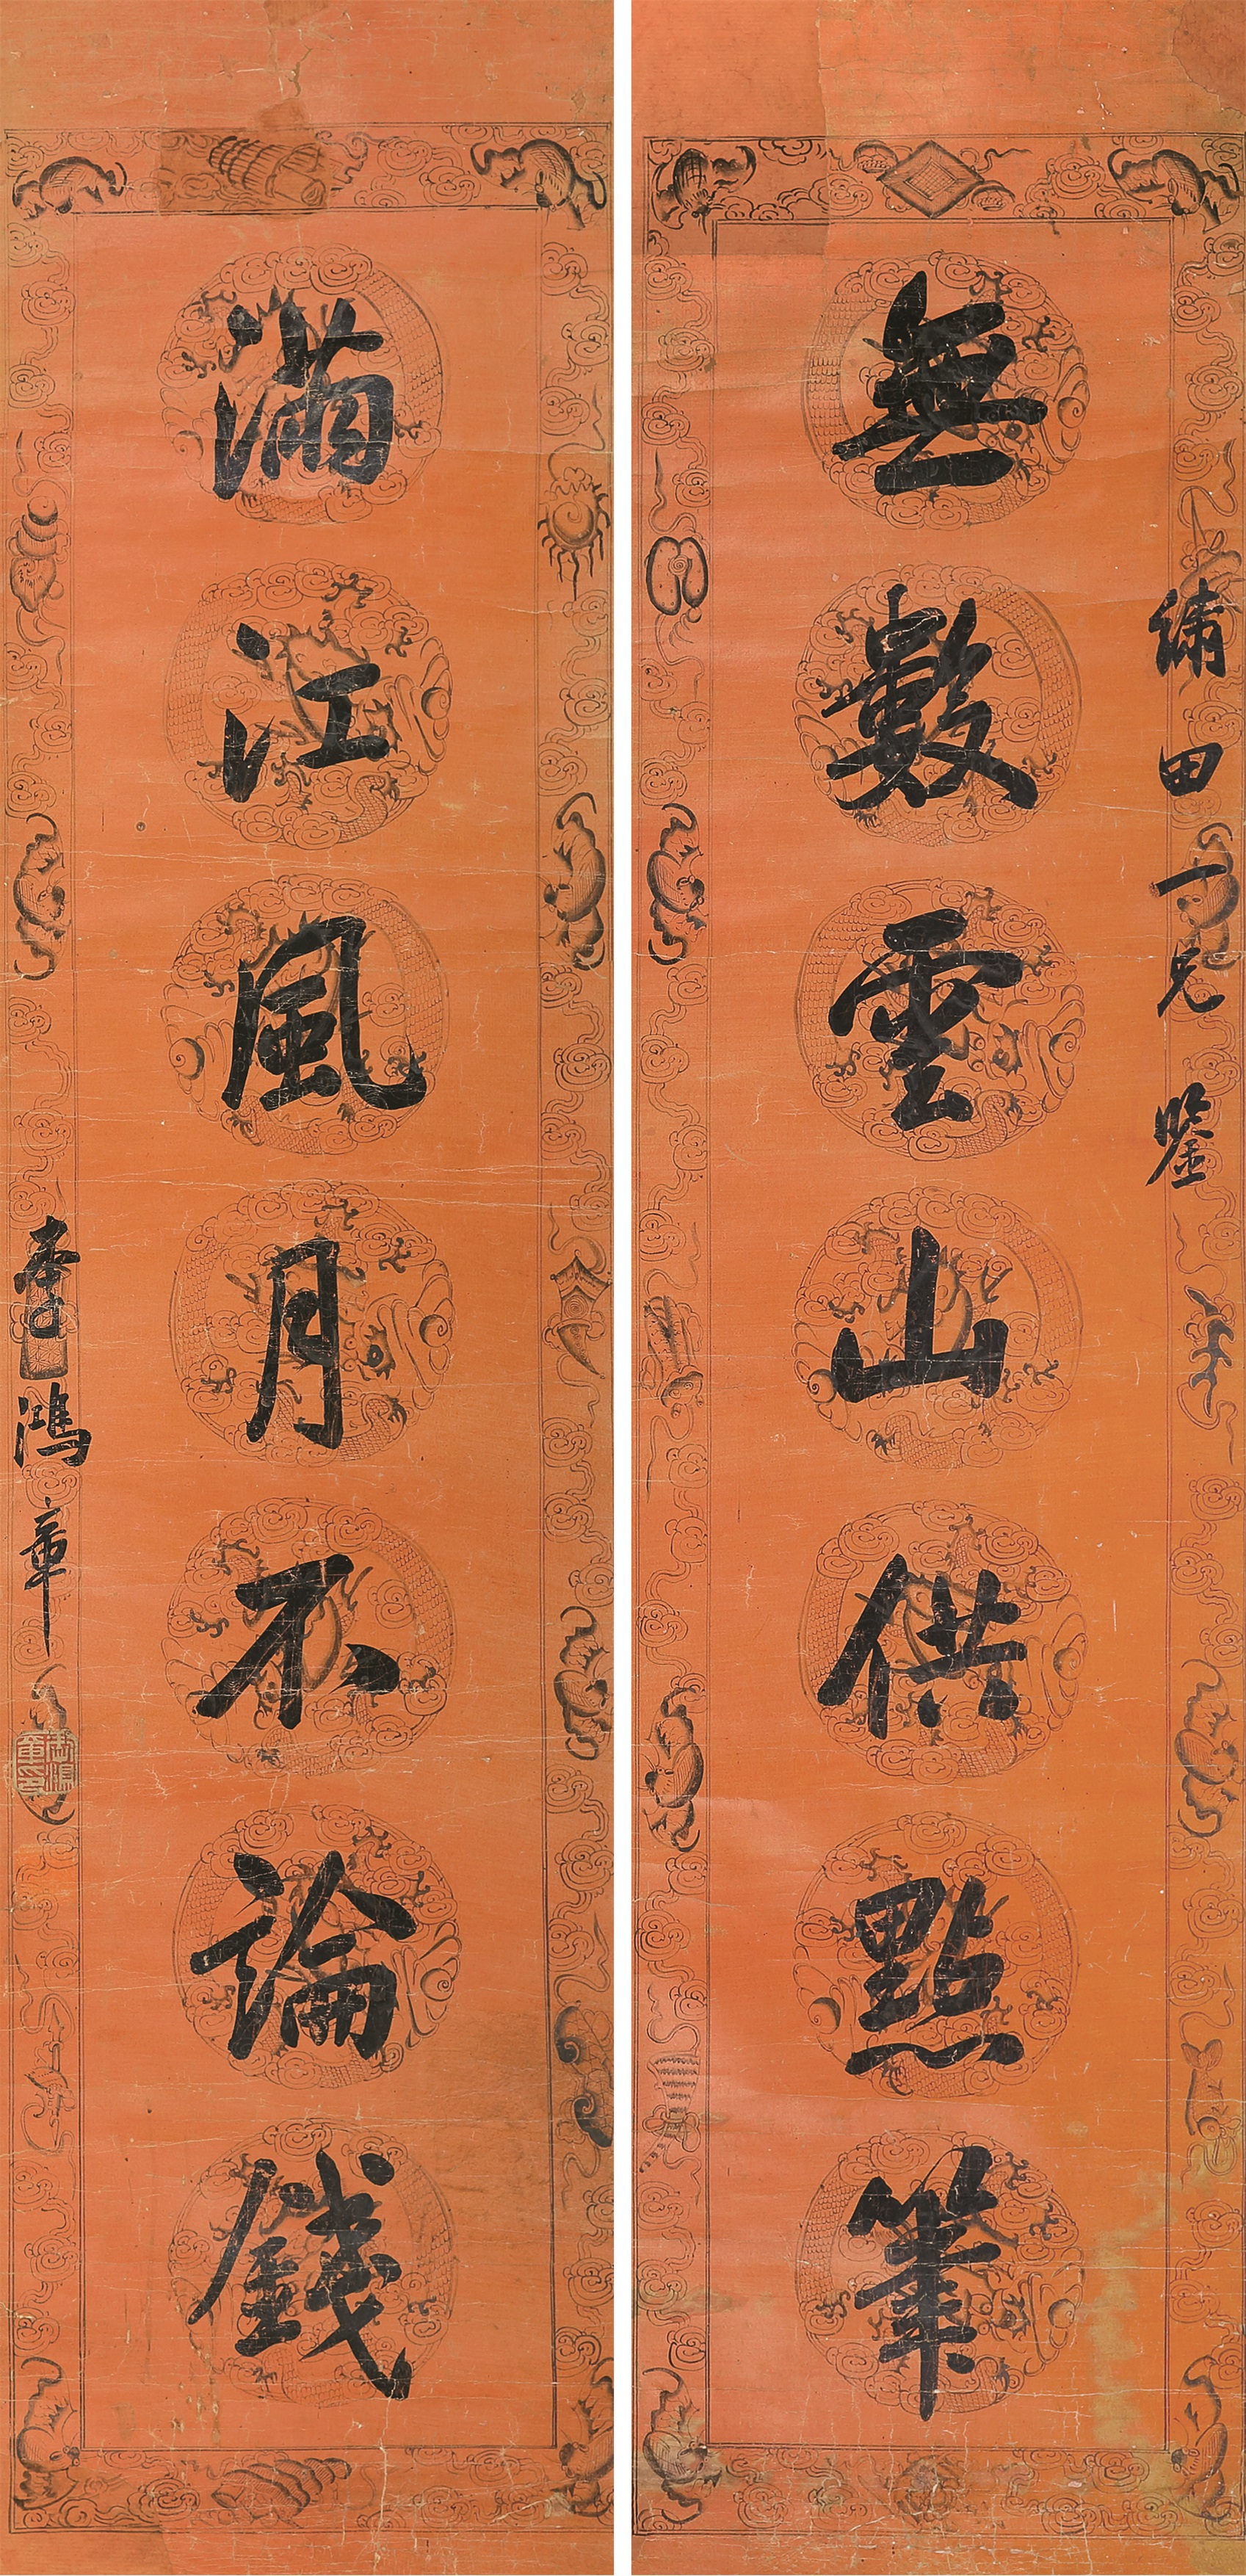 繡田一兄鑒
無數雲山供點筆
滿江風月不論錢
李鴻章
李鴻章印